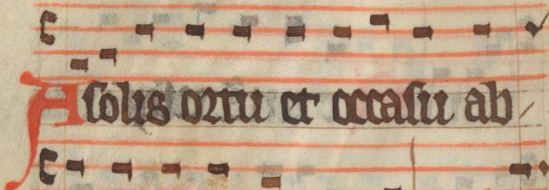 A solis ortu et occasu ab